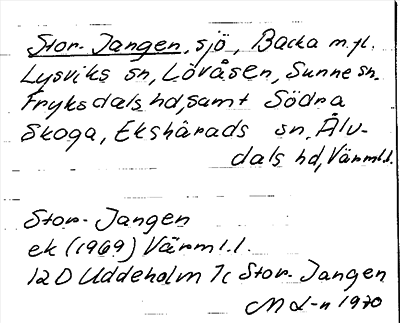 Stor-Jangen, sjö, Backa m.fl.
Lysviks sn, Lövåsen, Sunne sn.
Fryksdals hd, samt Södra
Skoga, Ekshärads sn, Älv-
dals hd, Värml.l.
Stor-Jangen
ek (1969) Värml.l.
12D Uddeholm 7c Stor-Jangen
M L-n 1970